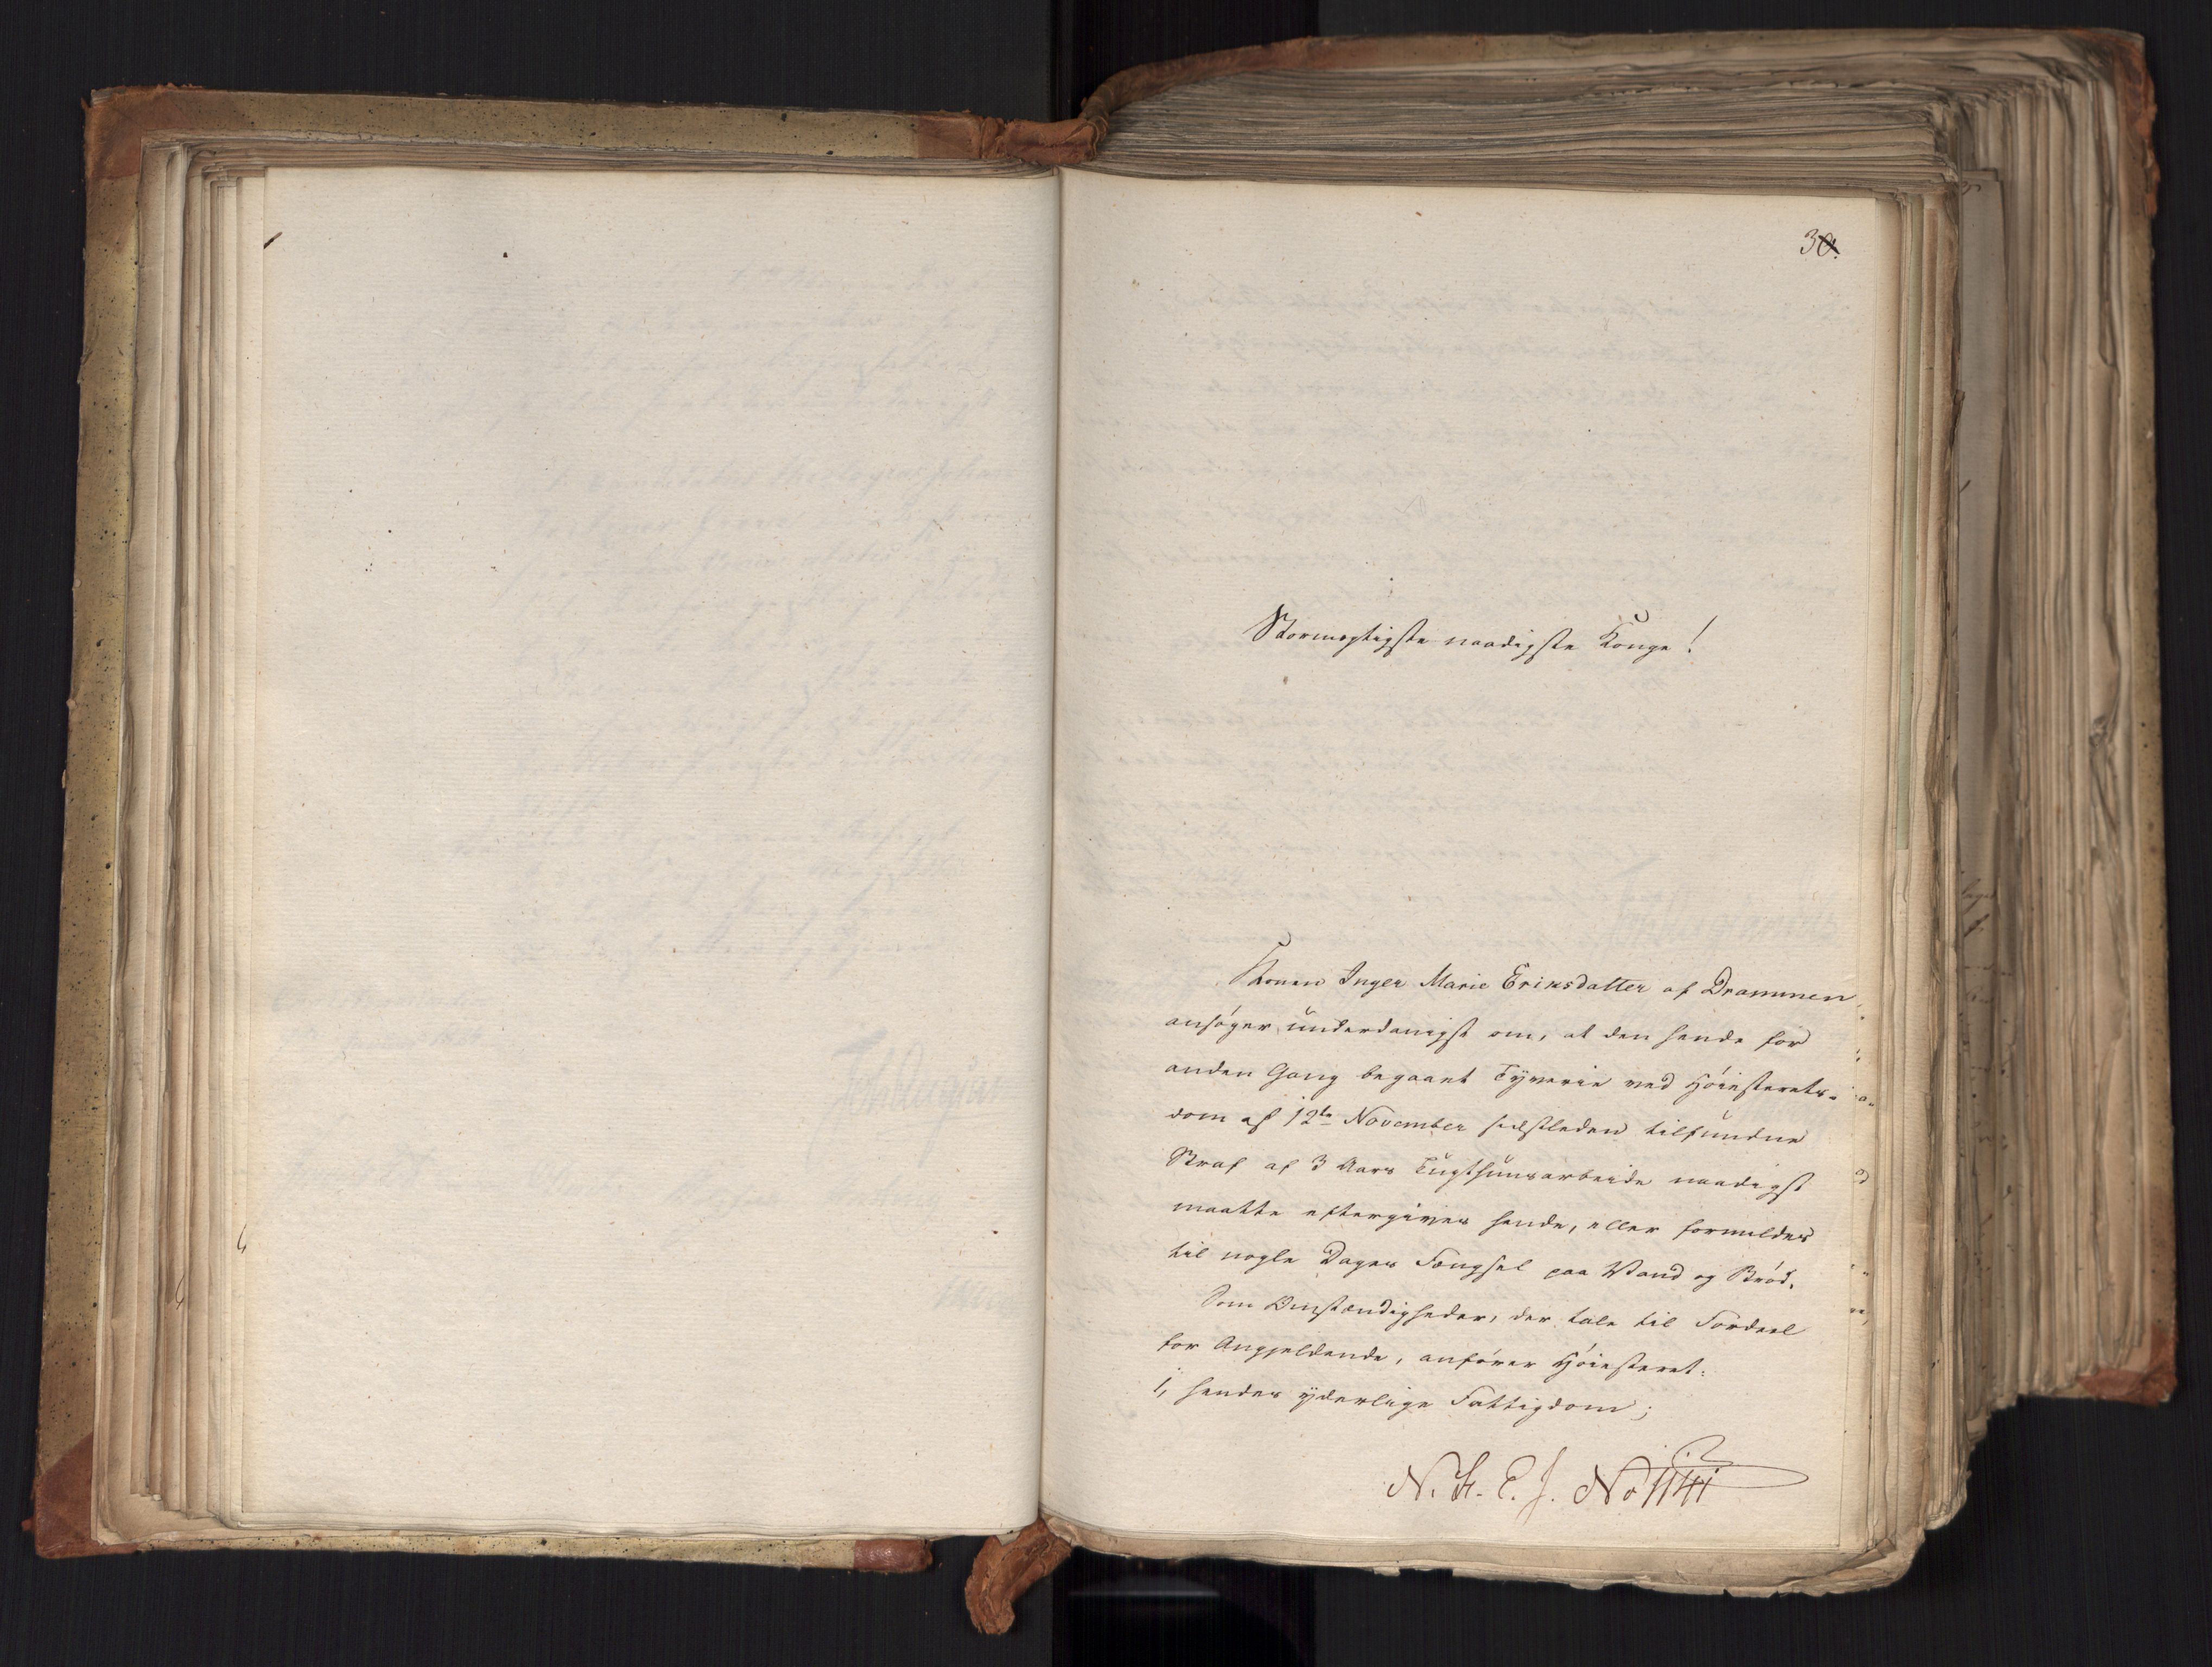 30.
Stormægtigste naadigste Konge!
Konen Inger Marie Eriksdatter af Drammen
ansøger underdanigst om, at den hende for
anden Gang begaaet Tyverie ved Høiesterets-
dom af 12te November sidstleden tilfundne
Straf af 3 Aars Tugthuusarbeide naadigst
maatte eftergives hende, eller formildes
til nogle Dages Fængsel paa Vand og Brød.
Som Omstændigheder, der tale til Fordeel
for Angjeldende, anfører Høiesteret:
1, hendes yderlige Fattigdom;
No 1141